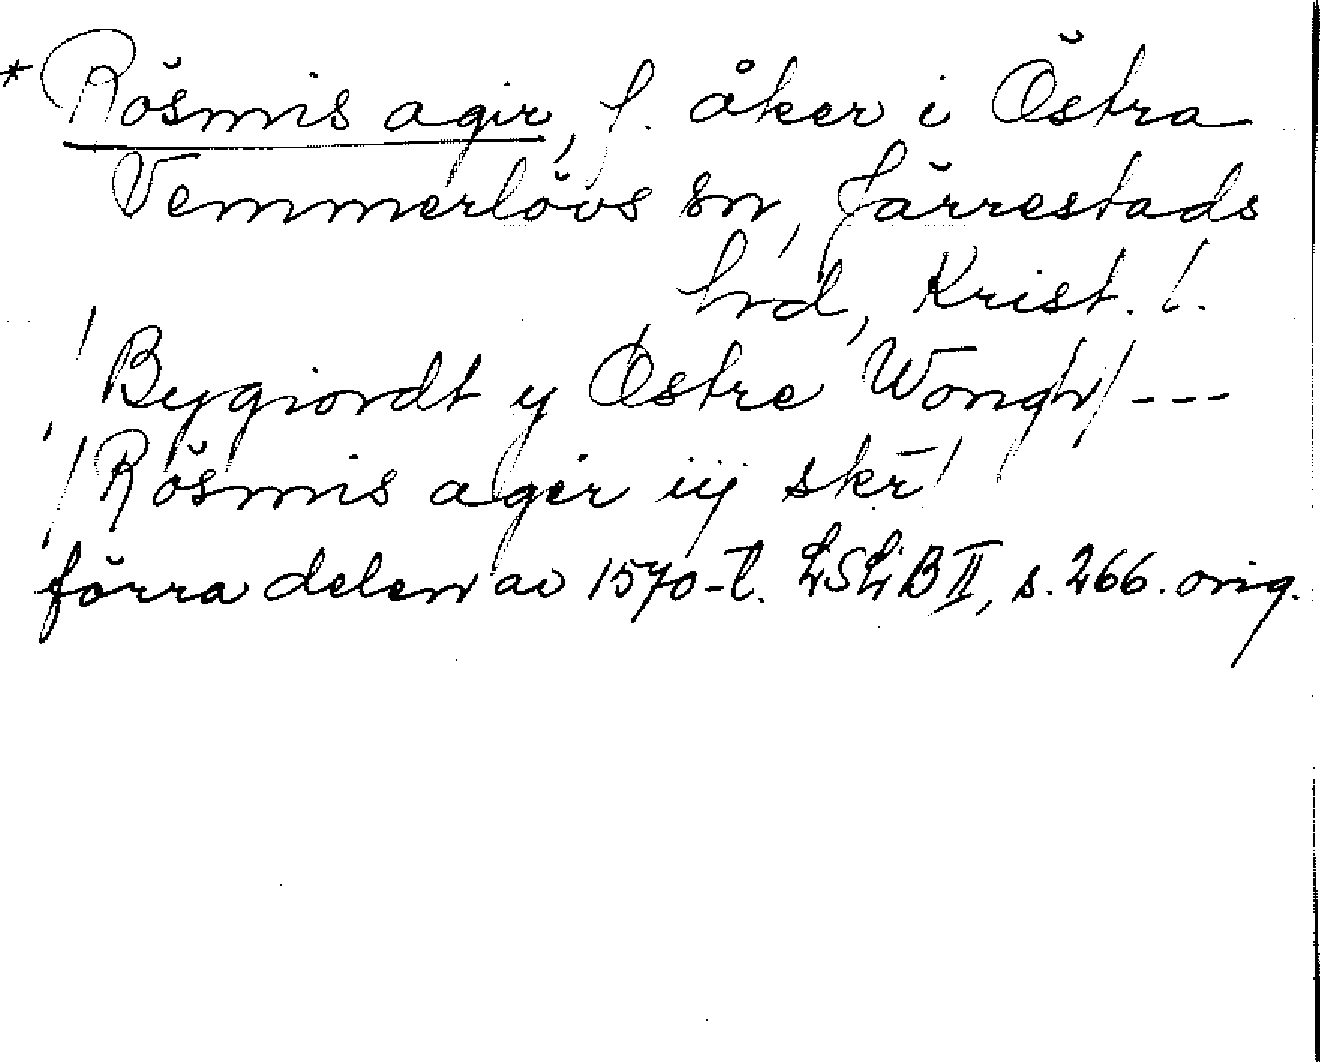 * Rösmis agir, f. åker i Östra
Vemmerlövs sn, Järrestads
hrd, Krist. l.
/ Bygiordt y Østre Wongh / ---
/ Rösmis ager iij skr̄ /
förra delen av 1570-t. LSLB II, s. 266. orig.